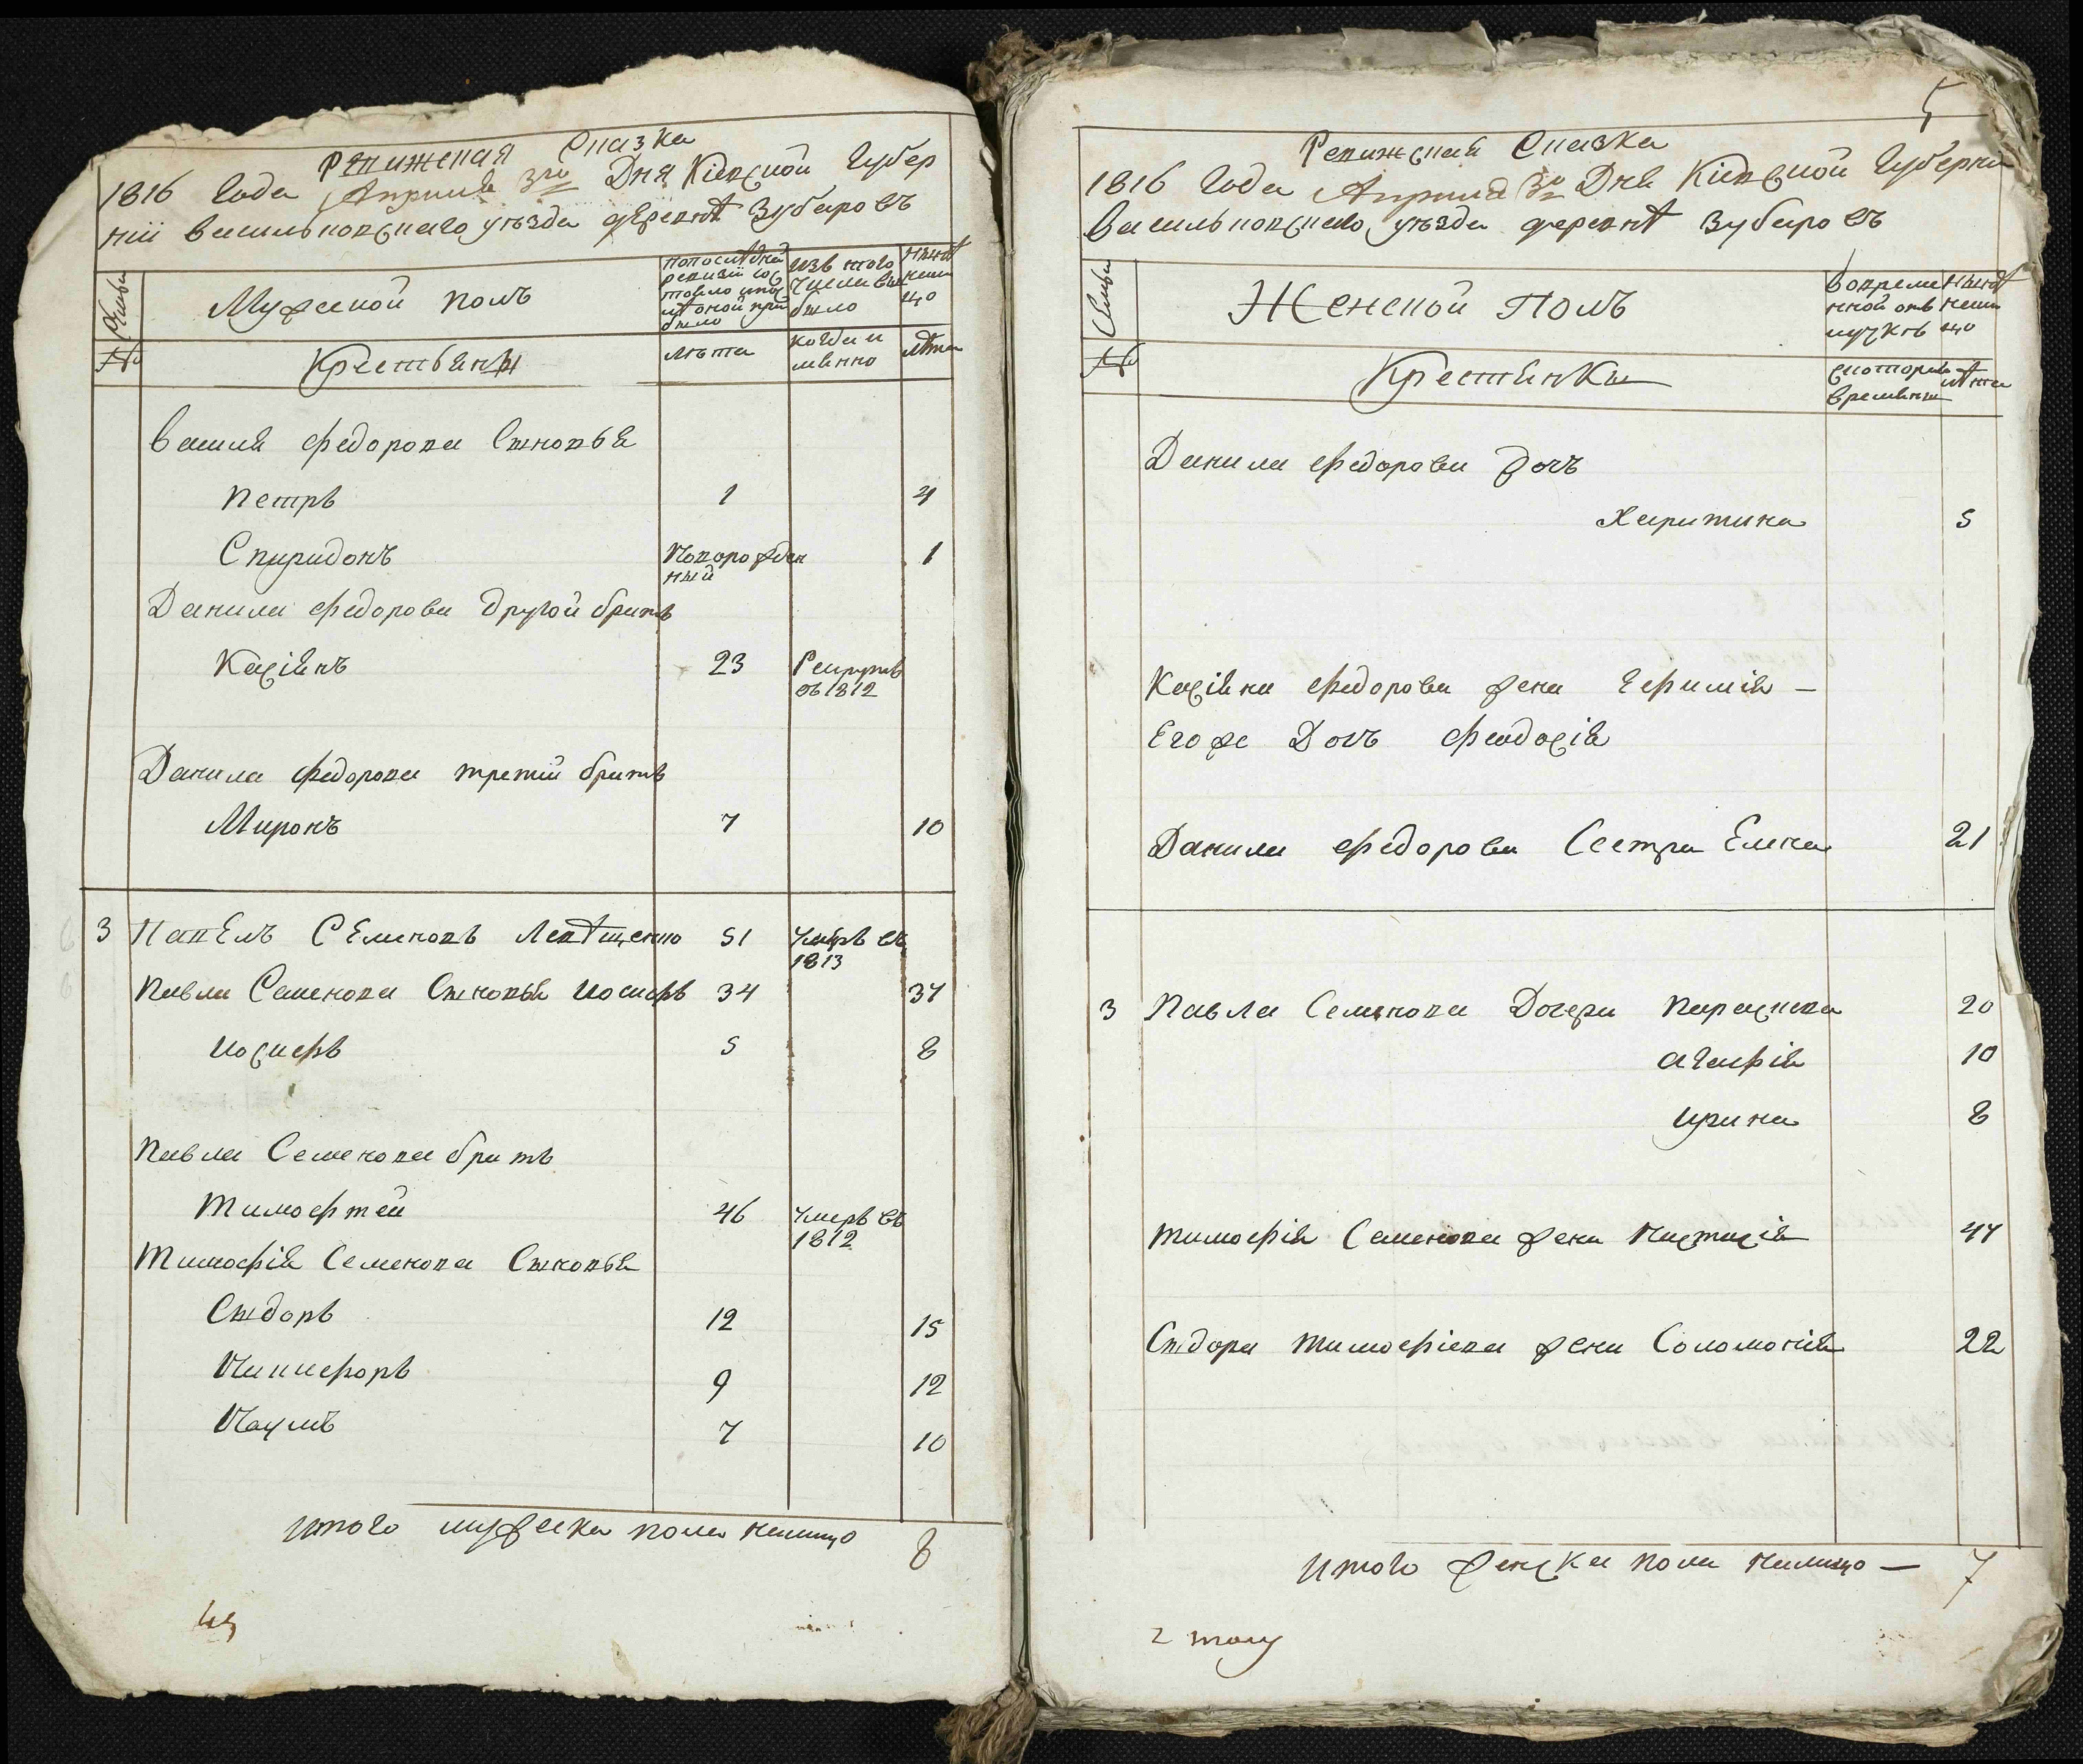 Ревижская Сказка
1816 Года Априля 3го Дня Кіевской Губер
нїи васильковскаго уѣзда деревнѣ Зубаровъ
Семьи
Мужеской полъ
попослѣдней ревизїи состояло ипослѣ оной прибыло
изъ того числа выбыло
нынѣ налицо
№
Крестьяны
лѣта
когда именно
лѣта
васыля Федорова Сыновья
Петръ 1 4
Спиридонъ Новорожден 1
ный
Данила Федорова другой братъ
Касіянъ 23 Рекрутъ
въ 1812
Данила Федорова третїй братъ
Миронъ 7 10
3 Павелъ Семеновъ Левѣщенко 51 Умеръ въ
1813
Павла Семенова Сыновья Иосифъ 34 37
Иосифъ 5 8
Павла Семенова братъ
Тимофтей 46 Умеръ въ
1812
Тимофія Семенова Сыновья
Сыдоръ 12 15
Никифоръ 9 12
Наумъ 7 10
Итого мужеска пола налицо 8
5
Ревижская Сказка
1816 Года Априля 3го Дня Кіевской Губерни
васильковскаго уѣзда деревнѣ Зубаровъ
Семьи
Женской Полъ
вовременной отълучкѣ
нынѣ налицо
№
Крестьянкы
скоторыхъ времянъ
лѣта
Данила Федорова дочъ
Харитина 5
Касіяна Федорова жена Ефимія —
Егоже Дочъ Феодосія
Данила Федорова Сестра Елена 21
3 Павла Семенова Дочери Параскева 20
Агафія 10
Ирина 8
Тимофія Семенова жена Настасія 47
Сыдора Тимофіева жена Соломонія 22
Итого женска пола налицо — 7
2 тому